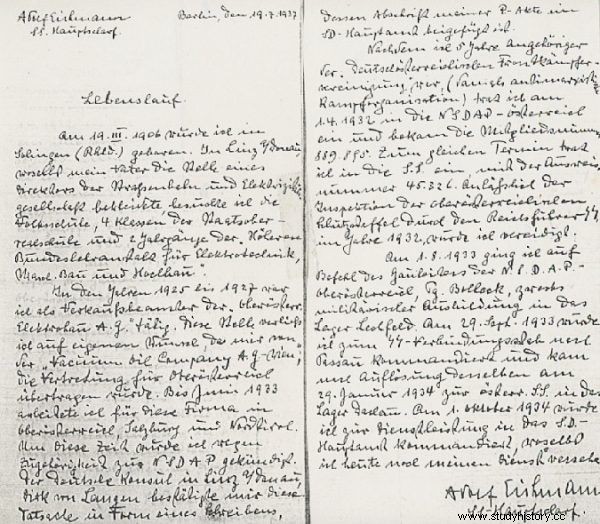 Adolf Eichmann
SS. Hauptscharf.
Berlin, den 19.7.1937
Lebenslauf.
Am 19. III. 1906 wurde ich in
Solingen (Rhld.) geboren. In Linz a/Donau,
woselbst mein Vater die Stelle eines
Direktors der Strassenbahn und Elektrizitäts
gesellschaft bekleidete besuchte ich die
Volksschule, 4 Klassen der Staatsober-
realschule und 2 Jahrgänge der "Höheren
Bundeslehranstalt für Elektrotechnik,
Masch. Bau und Hochbau".
In den Jahren 1925 bis 1927 war
ich als Verkaufsbeamter der "Oberösterr.
Elektrobau A.G." tätig. Diese Stelle verliess
ich auf eigenen Wunsch da mir von
der "Vacuum Oil Company A.G. Wien,"
die Vertretung für Oberösterreich
übertragen wurde. Bis Juni 1933
arbeitete ich für diese Firma in
Oberösterreich, Salzburg und Nordtirol.
Um diese Zeit wurde ich wegen
Zugehörigkeit zur NSDAP gekündigt.
Der deutsche Konsul in Linz a/Donau,
Dirk von Langen bestätigte mir diese
Tatsache in Form eines Schreibens,
dessen Abschrift meiner P-Akte im
SD-Hauptamt beigefügt ist.
Nachdem ich 5 Jahre Angehöriger
der "Deutschösterreichischen Frontkämpfer-
vereinigung" war, (damals antimarxistische
Kampforganisation) trat ich am
1.4.1932 in die NSDAP-Österreich
ein und bekam die Mitgliedsnummer
889.895. Zum gleichen Termin trat
ich in die SS. ein, mit der Ausweis
nummer 45.326. Anlässlich der
Inspektion der oberösterreichischen
Schutzstaffel durch den Reichsführer SS
im Jahre 1932, wurde ich vereidigt.
Am 1.8.1933 ging ich auf
Befehl des Gauleiters der N.S.D.A.P.-
Oberösterreich, Pg. Bolleck, zwecks
militärischer Ausbildung in das
Lager Lechfeld. Am 29. Sept. 1933 wurde
ich zum SS-Verbindungsstab nach
Passau kommandiert und kam
nach Auflösung desselben am
29. Januar 1934 zur österr. SS. in das
Lager Dachau. Am 1. Oktober 1934 wurde
ich zur Dienstleistung in das S.D.-
Hauptamt kommandiert, woselbst
ich heute noch meinen Dienst versehe.
Adolf Eichmann
SS-Hauptscharf.
www.studyhistory.cc